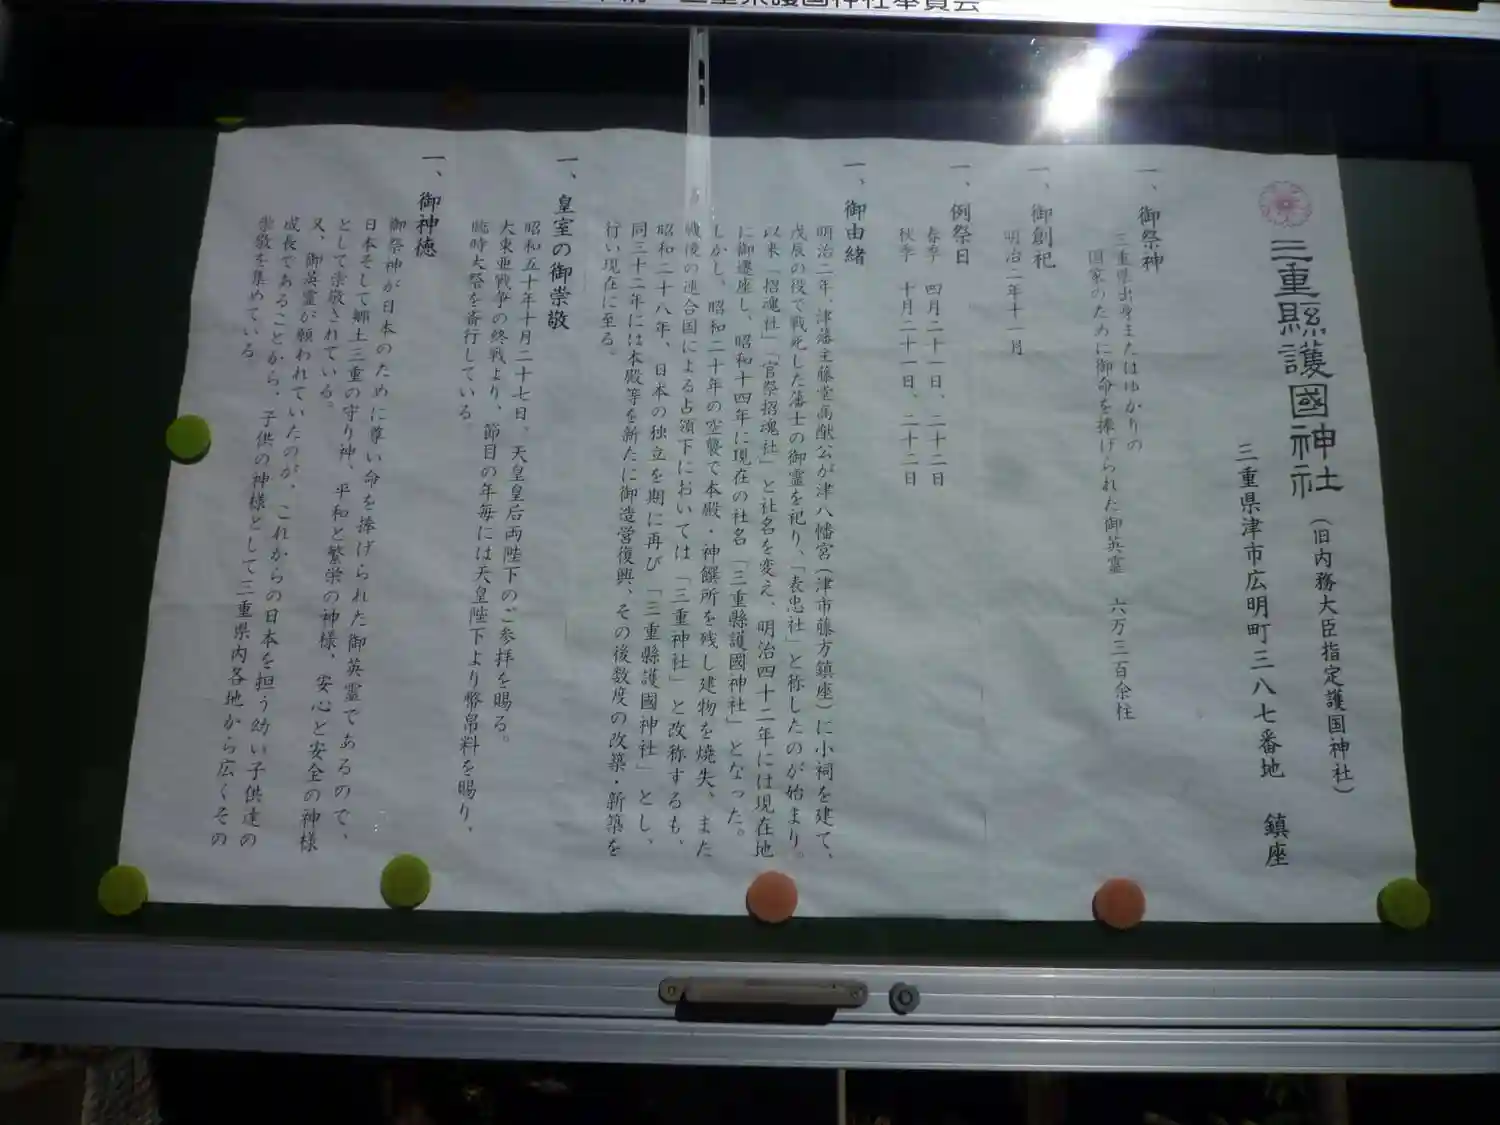 三重縣護國神社（旧内務大臣指定護国神社）
三重県津市広明町三八七番地　鎮座
一、御祭神
三重県出身またはゆかりの
国家のために御命を捧げられた御英霊　六万三百余柱
一、御創祀
明治二年十一月
一、例祭日
春季　四月二十一日、二十二日
秋季　十月二十一日、二十二日
一、御由緒
明治二年、津藩主藤堂高猷公が津八幡宮（津市藤方鎮座）に小祠を建て、
戊辰の役で戦死した藩士の御霊を祀り、「表忠社」と称したのが始まり。
以来「招魂社」「官祭招魂社」と社名を変え、明治四十二年には現在地
に御遷座し、昭和十四年に現在の社名「三重縣護國神社」となった。
しかし、昭和二十年の空襲で本殿・神饌所を残し建物を焼失、また
戦後の連合国による占領下においては「三重神社」と改称するも、
昭和二十八年、日本の独立を期に再び「三重縣護國神社」とし、
同三十二年には本殿等を新たに御造営復興、その後数度の改築・新築を
行い現在に至る。
一、皇室の御崇敬
昭和五十年十月二十七日、天皇皇后両陛下のご参拝を賜る。
大東亜戦争の終戦より、節目の年毎には天皇陛下より幣帛料を賜り、
臨時大祭を斎行している
一、御神徳
御祭神が日本のために尊い命を捧げられた御英霊であるので、
日本そして郷土三重の守り神、平和と繁栄の神様、安心と安全の神様
として崇敬されている。
又、御英霊が願われていたのが、これからの日本を担う幼い子供達の
成長であることから、子供の神様として三重県内各地から広くその
崇敬を集めている。